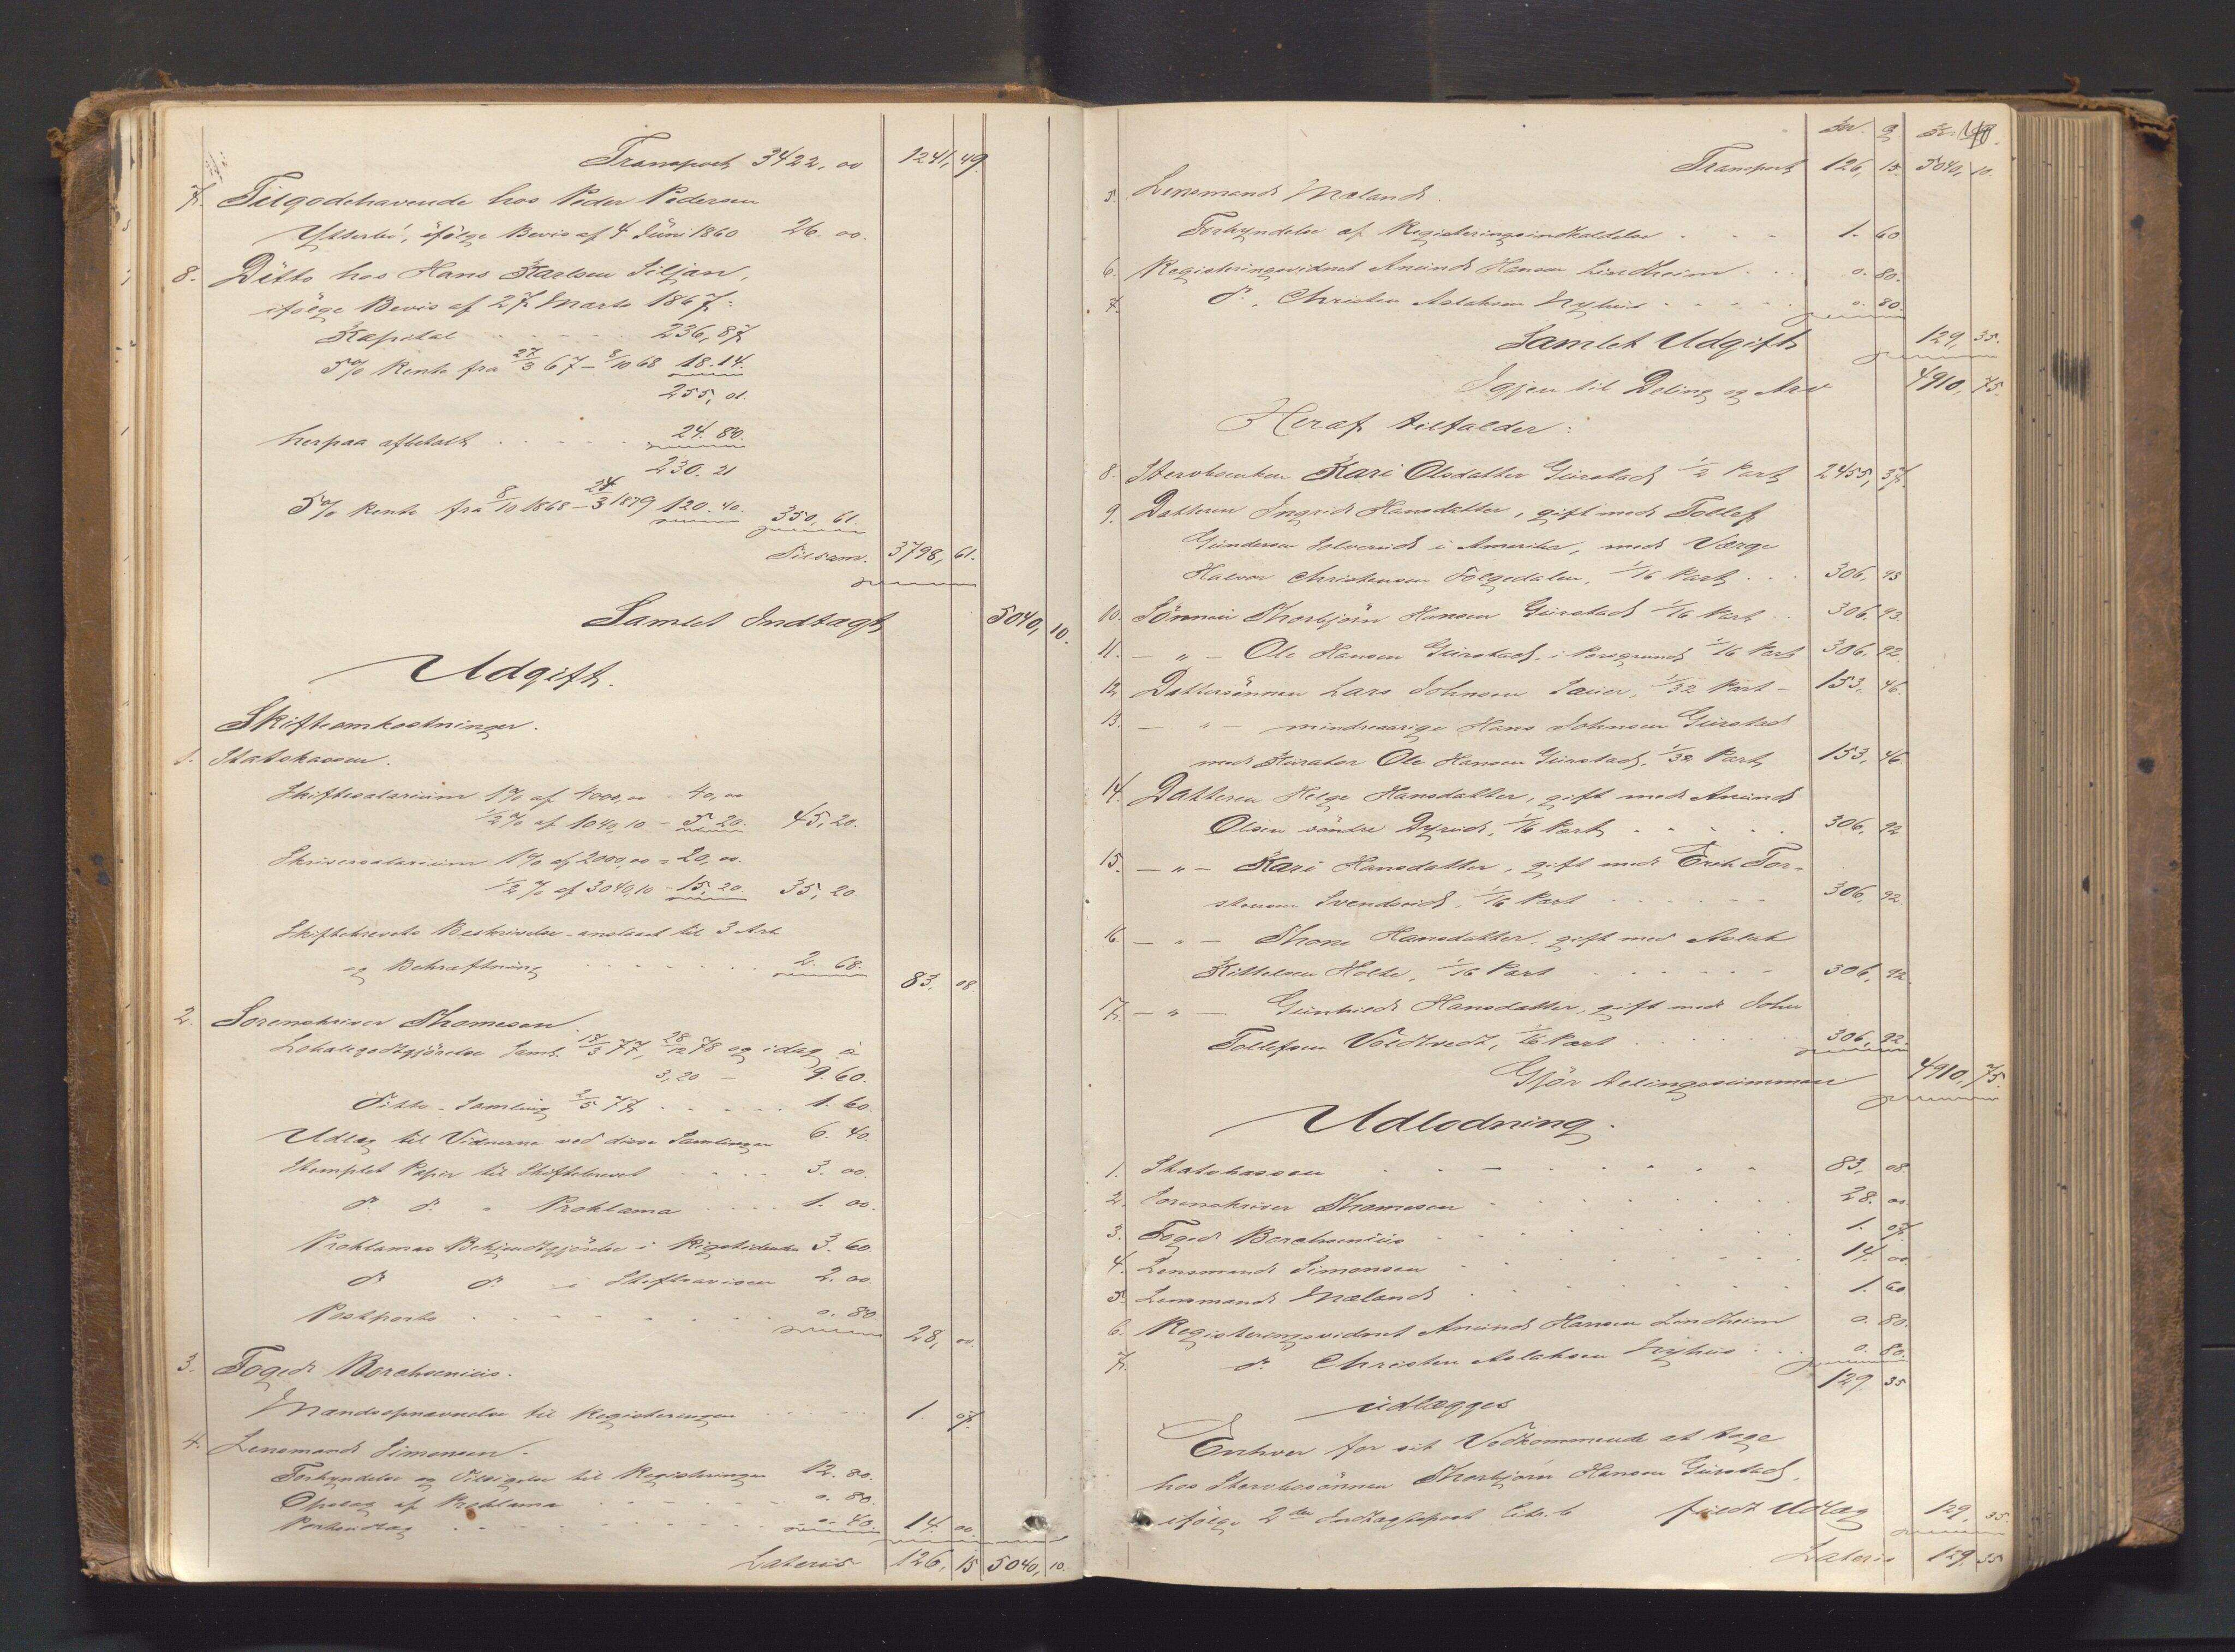 Transport 3422. 00 1241, 49.
7. Tilgodehavende hos Peder Pedersen
Ytterbö, ifölge Bevis af 4 Juni 1860 26. 00.
8. Ditto hos Hans Karlsen Siljan,
ifölge Bevis af 27 Marts 1867:
Kapital 236, 87
5% Rente fra 27/3 67 - 8/10 68 18. 14.
255, 01.
herpaa afbetalt 24. 80.
230. 21
5% Rente fra 8/10 1868 - 24/3 1879 120. 40. 350, 61.
Tilsam. 3798, 61.
Samlet Indtægt 5040, 10.
Udgift.
Skifteomkostninger.
1. Statskassen.
Skiftesalarium 1% af 4000,00 - 40,00
1/2% af 1040,10 - 5. 20. 45, 20.
Skriversalarium 1% af 2000,00 = 20,00.
1/2% af 3040,10 - 15, 20. 35, 20
Skiftebrevets Beskrivelse anslaaet til 3 Ark
og Bekræftning 2. 68. 83, 08.
2. Sorenskriver Thomesen.
Lokalegodtgjörelse Saml. 17/3 77, 28/12 78 og idag à
3,20 - 9. 60.
Ditto - Samling 2/5 77 1. 60.
Udlæg til Vidnerne ved disse Samlinger 6. 40.
Stemplet Papir til Skiftebrevet 3. 00.
do. do. " Proklama 1. 00.
Proklamas Bekjendtgjörelse i Rigstidende 3. 60.
do do. i Skiftsavisen 2. 00.
Postporto 0. 80. 28, 00.
3. Foged Borchsenius.
Mandsopnævnelse til Registeringen 1. 07.
4. Lensmand Simonsen.
Forkyndelse og Tilsigelse til Registeringen 12. 80.
Opslag af Proklama 0. 80.
Portoudlæg 0. 40. 14. 00.
Lateris 126, 15 5040, 10.
Kr. Ø Kr.
Transport 126, 15. 5040, 10.
5. Lensmand Mæland.
Forkyndelse af Registeringsindkaldelse 1. 60
6. Registeringsvidnet Anund Hansen Lindheim 0. 80.
7. do. Christen Aslaksen Nyhus 0. 80.
Samlet Udgift 129, 35.
Igjen til Deling og Arv 4910, 75.
Heraf tilfalder:
8. Stervbsenken Kari Olsdatter Gurstad 1/2 Part 2455, 37.
9. Datteren Ingrid Hansdatter, gift med Tollef
Gundersen Solverud i Amerika, med Værge
Halvor Christensen Folgedalen, 1/16 Part 306, 93
10. Sönnen Thorbjörn Hansen Gurstad 1/16 Part 306, 93.
11. - " - Ole Hansen Gurstad, i Porsgrund 1/16 Part 306, 92.
12. Dattersönnen Lars Johnsen Sauer, 1/32 Part - 153, 46.
13. - " - mindreaarige Hans Johnsen Gurstad
med Kurator Ole Hansen Gurstad, 1/32 Part 153, 46.
14. Datteren Helge Hansdatter, gift med Anund
Olsen söndre Dyrud, 1/16 Part 306, 92
15. - " - Kari Hansdatter, gift med Erik Tor-
stensen Svendseid, 1/16 Part 306, 92.
16. - " - Thone Hansdatter, gift med Aslak
Kittelsen Holte, 1/16 Part 306, 92.
17. - " - Gunhild Hansdatter, gift med John
Tollefsen Voldtvedt, 1/16 Part 306, 92.
Gjör Delingssummen 4910, 75.
Udlodning.
1. Statskassen 83, 08.
2. Sorenskriver Thomesen 28. 00.
3. Foged Borchsenius 1. 07.
4. Lensmand Simonsen 14. 00.
5. Lensmand Mæland 1. 60
6. Registeringsvidnet Anund Hansen Lindheim 0. 80.
7. do. Christen Aslaksen Nyhus 0. 80.
129, 35
udlægges
Enhver for sit Vedkommende at tage
hos Stervbosönnen Thorbjörn Hansen Gurstad,
ifölge 2den Indtægtspost Litr. b fuldt Udlæg 129, 35.
Lateris 129. 35